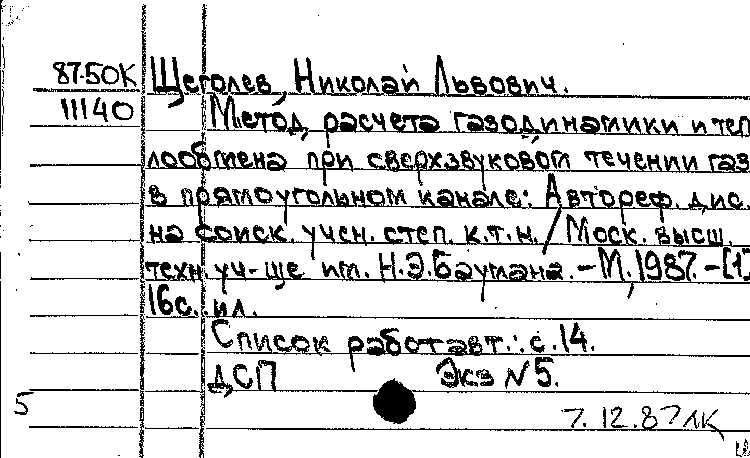 87-50К Щеголев, Николай Львович.
11140 Метод расчета газодинамики и теп
лообмена при сверхзвуковой течении газ
в прямоугольном канале: Автореф. дис.
на соиск. учен. степ. к.т.н. / Моск. высш.
техн. уч-ще им. Н.Э.Баумана. - М., 1987. - [1]
16с. ил.
Список работ авт.: с.14.
ДСП Экз N 5.
5 7.12.87 ЛК